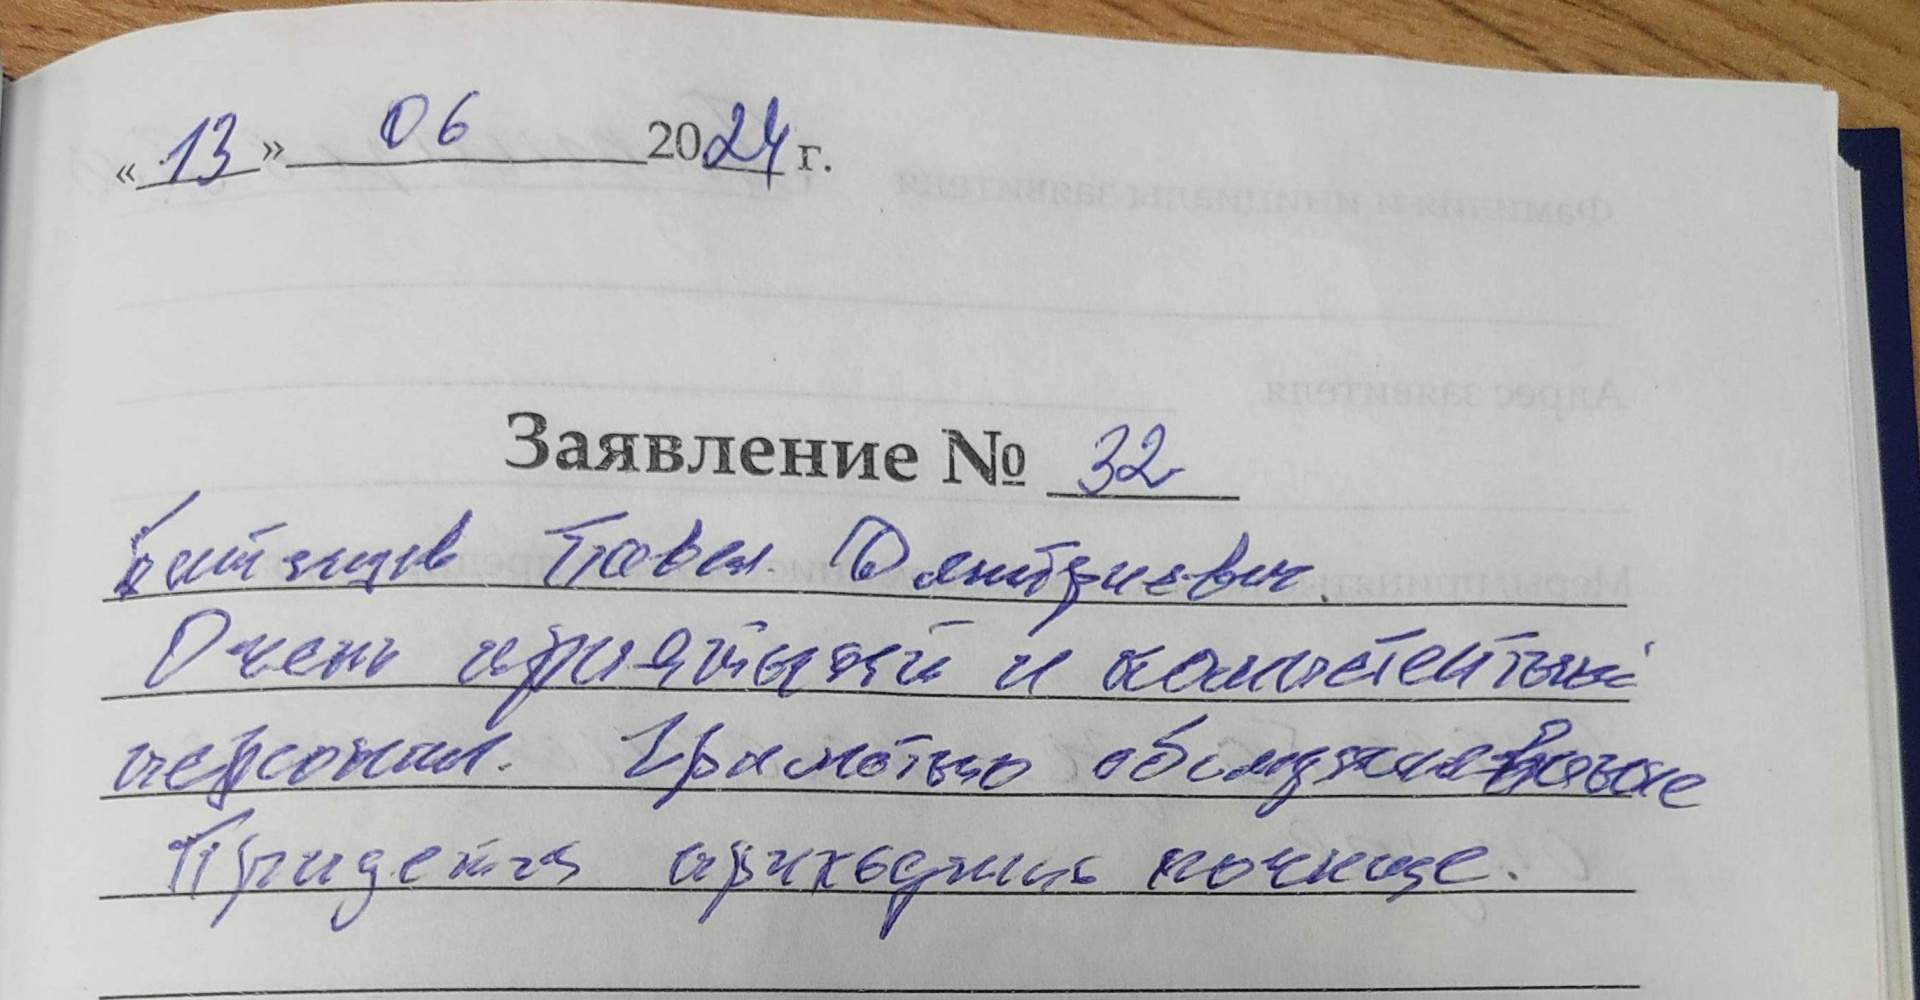 «13» 06 2024 г.
Заявление № 32
Павел Дмитриевич.
Очень приятный и компетентный
персонал. Грамотно обслуживание
Придется приходить почаще.